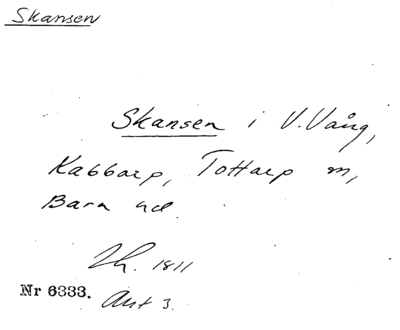 Skansen
Skansen i V. Vång,
Kabbarp, Tottarp sn,
Bara hd.
Lh. 1811
Nr 6333. Akt 3.